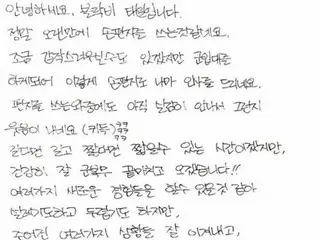 안녕하세요. 블락비 태일입니다.
정말 오랜만에 손편지를 쓰는것같네요.
조금 갑작스러울실수도 있겠지만 군입대를
하게되어 이렇게 손편지로 나마 인사를 드리네요.
편지를 쓰는와중에도 아직 실감이 안나서 그런지
웃음이 나네요 (키득) ㅋㅋㅋㅋ
길다면 길고 짧다면 짧을수 있는 시간이겠지만,
건강히 잘 군복무 끝마치고 오겠습니다!!
여러가지 새로운 경험들을 할수 있을것 같아
설레기도하고 두렵기도 하지만,
주어진 여러가지 상황들 잘 이겨내고,